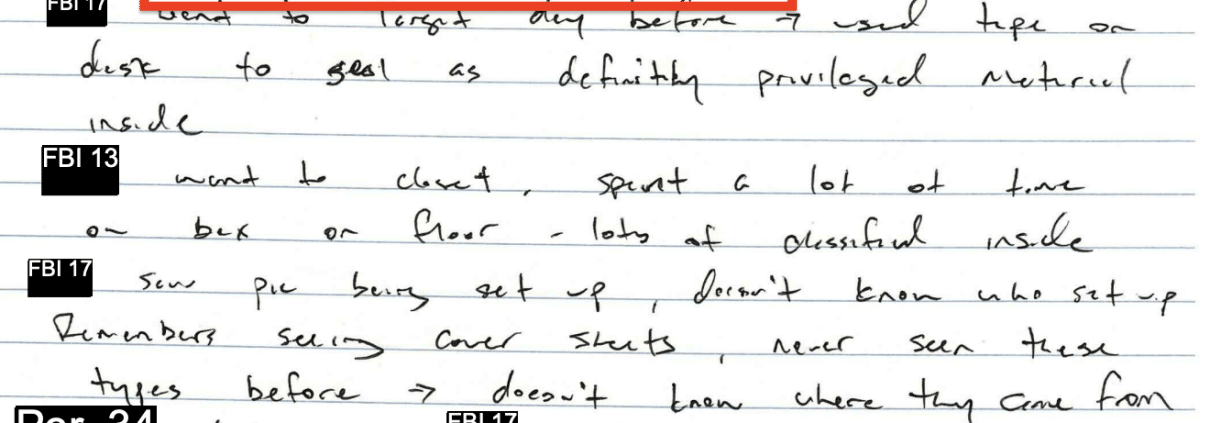 FBI 17 went to target day before → used tape on
desk to seal as definitely privileged material
inside
FBI 13 went to closet, spent a lot of time
on box on floor - lots of classified inside
FBI 17 saw pic being set up, doesn't know who set up
Remembers seeing cover sheets, never seen these
types before → doesn't know where they came from
Per. 34 FBI 17